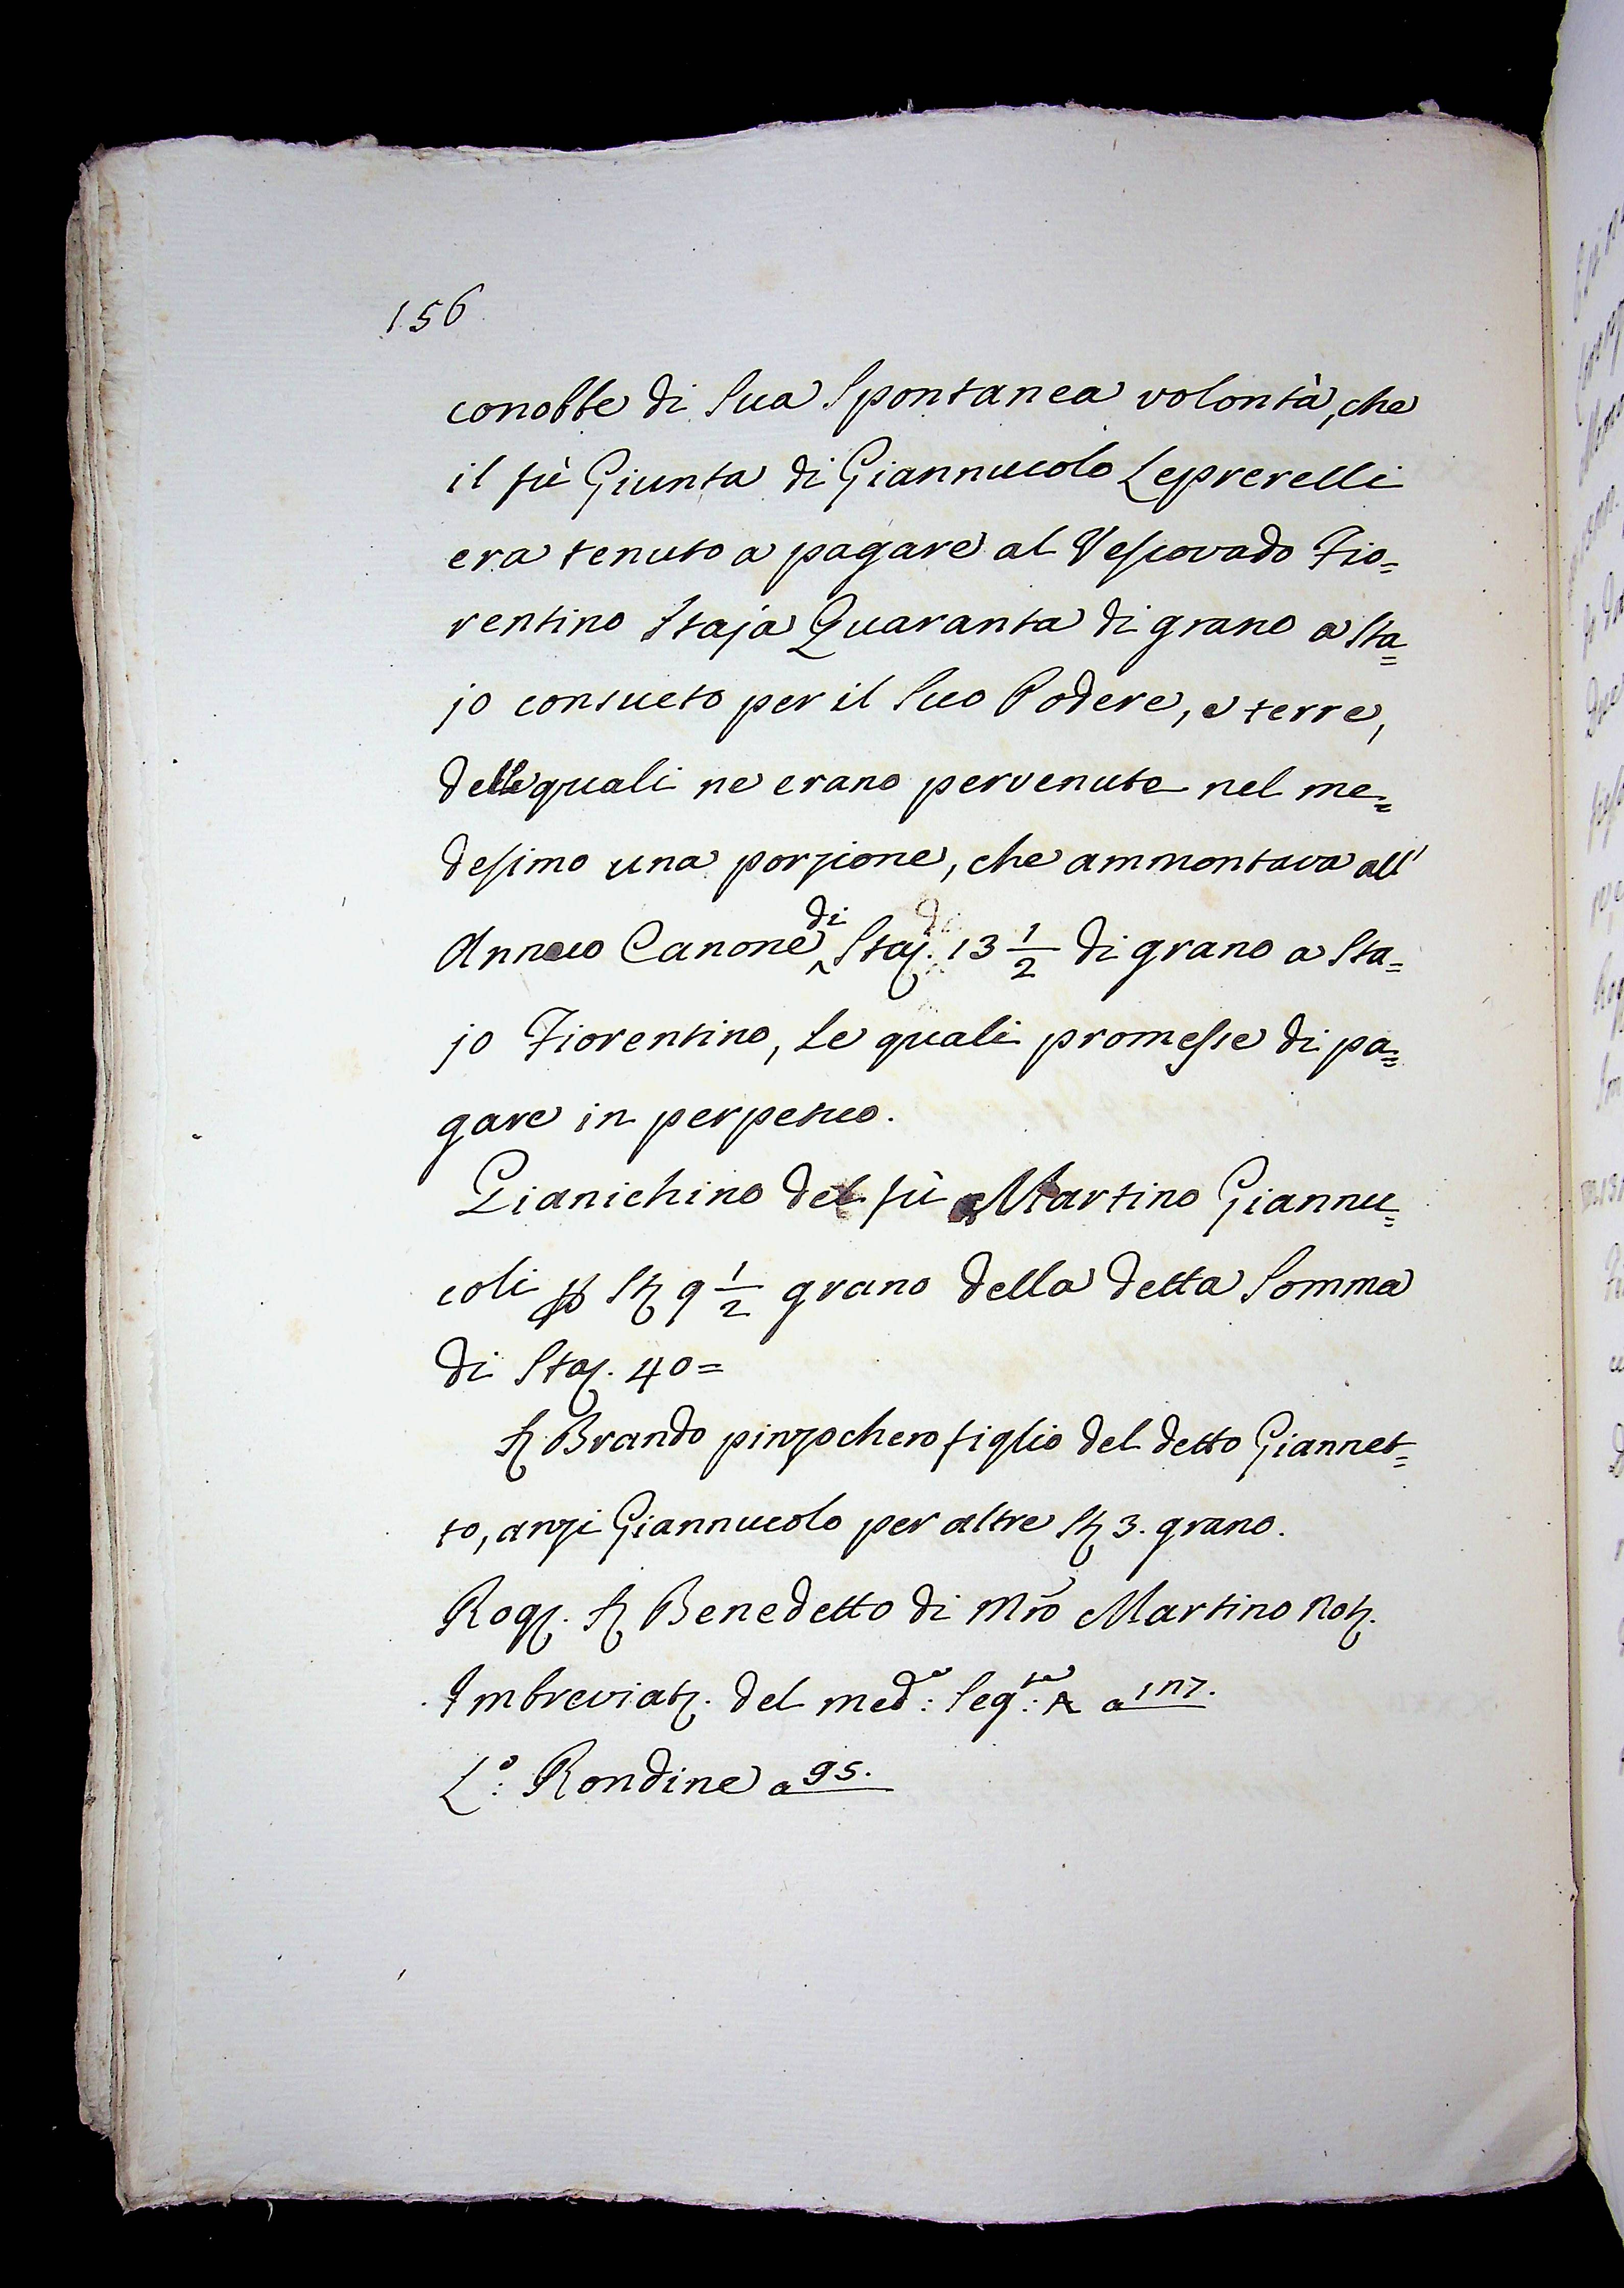 156
conobbe di Sua Spontanea volontà, che
il fù Giunta di Giannucolo Leprerelli
era tenuto a pagare al Vescovado Fio=
rentino Staja Quaranta di grano a Sta=
jo consueto per il Suo Podere, e terre,
delle quali ne erano pervenute nel me=
desimo una porzione, che ammontava all'
Annuo Canone di Staj. 13 1/2 di grano a Sta=
jo Fiorentino, Le quali promesse di pa=
gare in perpetuo.
Gianichino del fù Martino Giannu=
coli p St 9 1/2 grano della detta Somma
di Staj. 40=
Fr Brando pinzochero figlio del detto Giannet=
to, anzi Giannucolo per altre St 3. grano.
Rog. Benedetto di Mro Martino Not.
Imbreviat. del medo: Segte: A a
Lo: Rondine a 95.